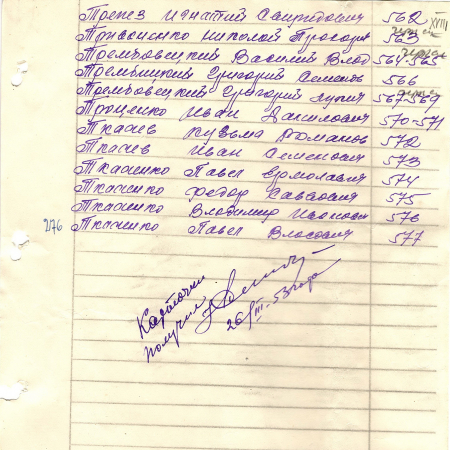 Трепез Игнатий Спиридович 562 XVIII
Николай 563
Трембовецкий Василий Влас 564-565
Григорий Семенов 566
Трембовецкий Григорий Лукич 567-569
Проценко Иван Данилович 570-571
Ткачев Кузьма Романов 572
Ткачев Иван Семенович 573
Ткаченко Павел Ермолаевич 574
Ткаченко Федор Саввович 575
Ткаченко Владимир Иванович 576
276 Ткаченко Павел Власович 577
Карточки
получил
26/III-53 года